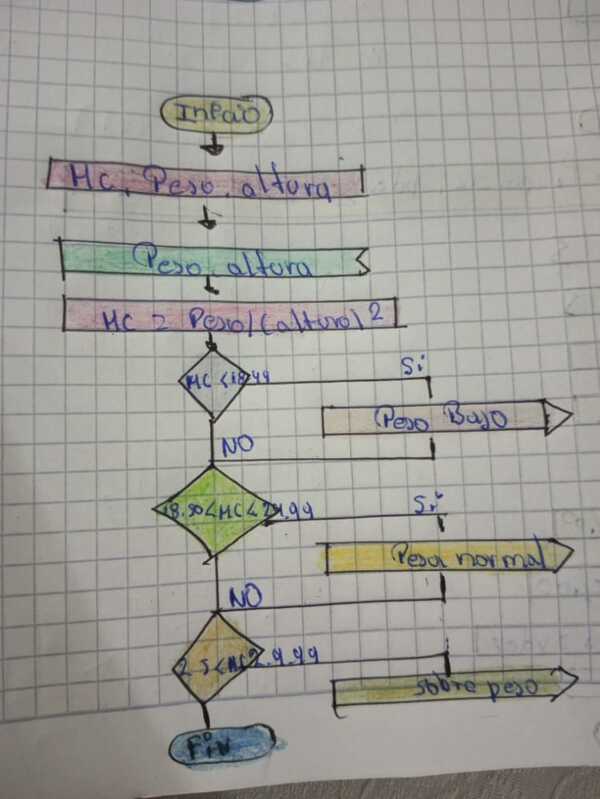 Inicio
MC, Peso, altura
Peso, altura
MC = Peso/(altura)²
MC < 18.49
Si
Peso Bajo
NO
18.50 < MC < 24.99
Si
Peso normal
NO
25 < MC 29.99
sobre peso
Fin